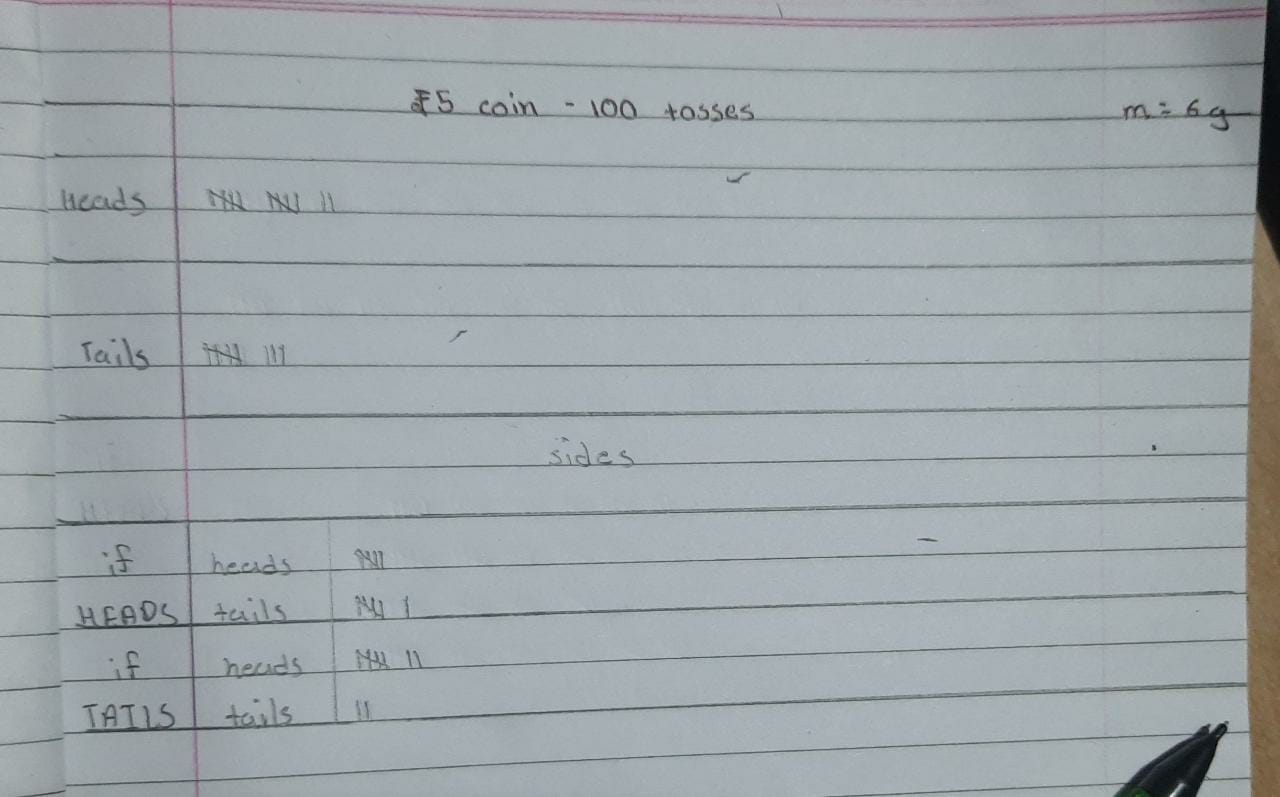 ₹5 coin - 100 tosses m = 6g
Heads 𝍸 𝍸 ||
Tails 𝍸 |||
sides
if heads 𝍸
HEADS tails 𝍸 |
if heads 𝍸 ||
TAILS tails ||